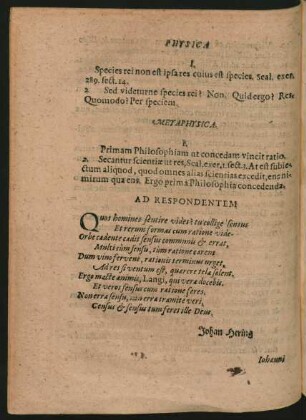 PHYSICA
I.
Species rei non est ipsa res cuius est species. Scal. exer.
289. sect. 14.
2. Sed videturne species rei? Non. Quid ergo? Res.
Quomodo? Per speciem.
METAPHYSICA.
I.
Primam Philosophiam ut concedam vincit ratio.
2. Secantur scientiæ ut res, Scal. exer. 1. sect. 1. At est subje-
ctum aliquod, quod omnes alias scientias excedit, ens ni-
mirum qua ens. Ergo prima Philosophia concedenda.
AD RESPONDENTEM
Quos homines sentire vides? tu collige sensus
Et rerum formas cum ratione vide
Orbe cadente cadit sensus communis & errat,
Multi cum sensu, cum ratione
Dum vim fervent, rationis terminus urget,
Ad res si ventum est, quærere tela solent,
Ergo macte animis, Langi, qui vera docebis,
Et veros sensus cum ratione feres,
Non erra sensu, non erra tramite veri,
Census & sensus tum feret ille Deus,
Johan Hering
Johanni